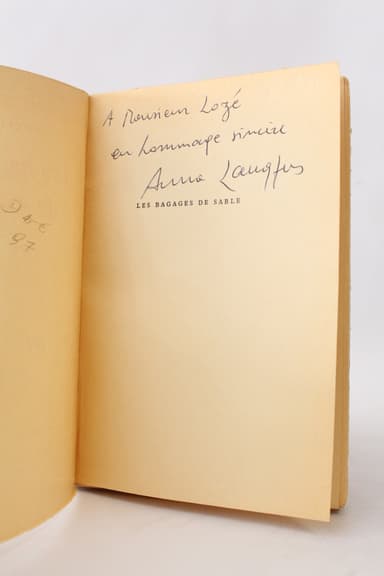 A Monsieur Lozé
en hommage sincère
Anna Langfus
LES BAGAGES DE SABLE
97